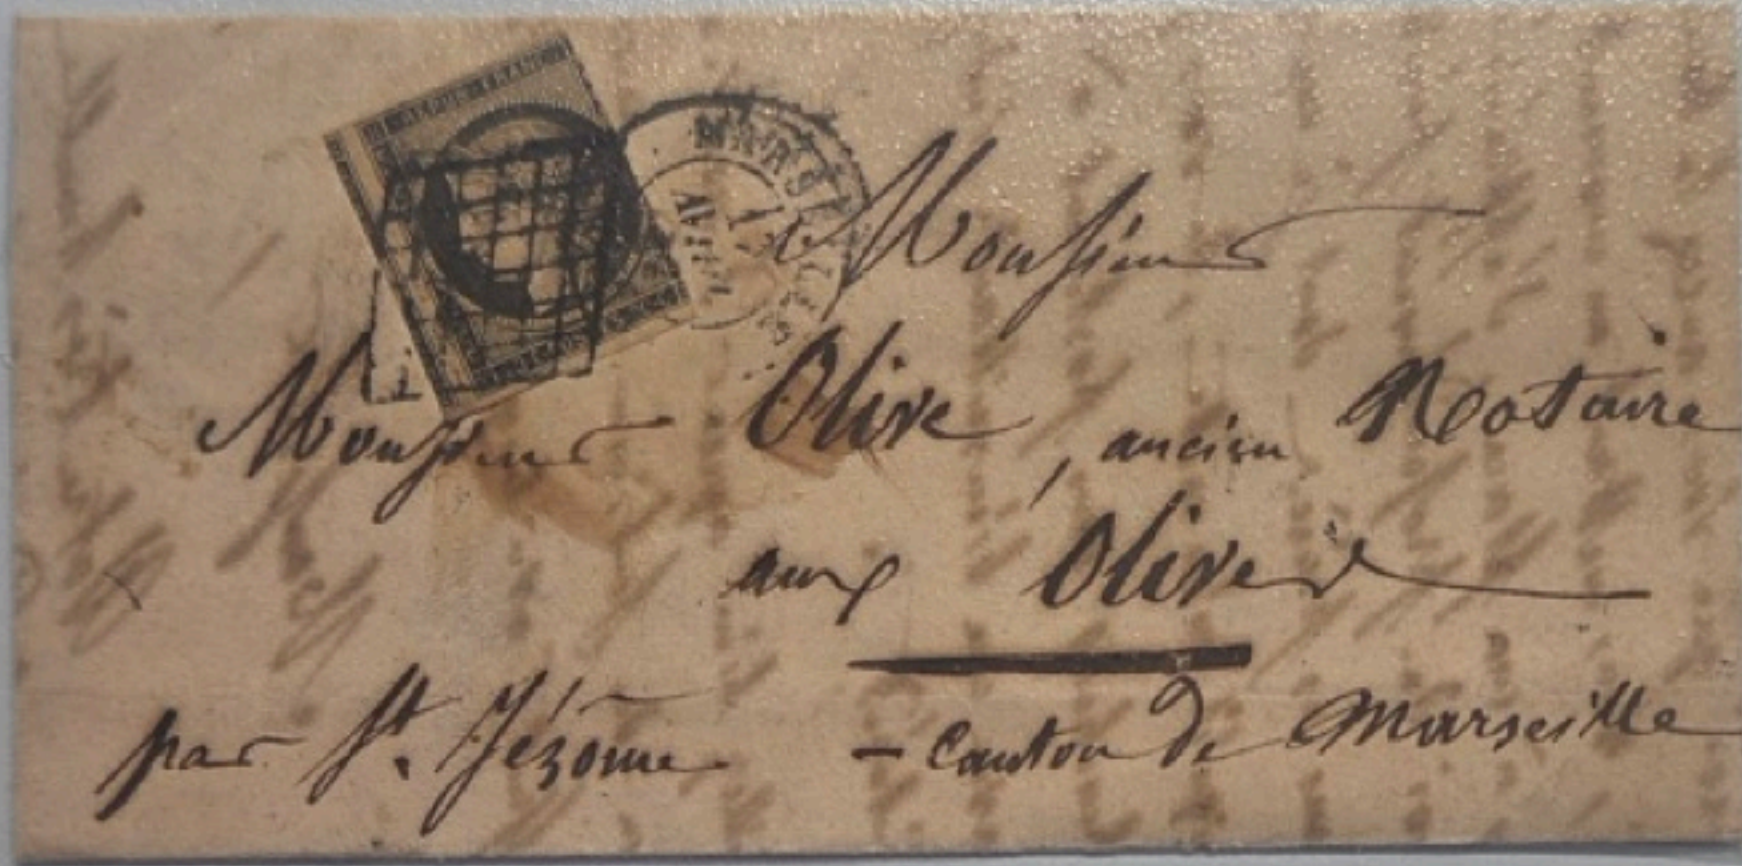 Monsieur
Monsieur Olive, ancien Notaire
aux Olives
par St. Jérome - Canton de Marseille